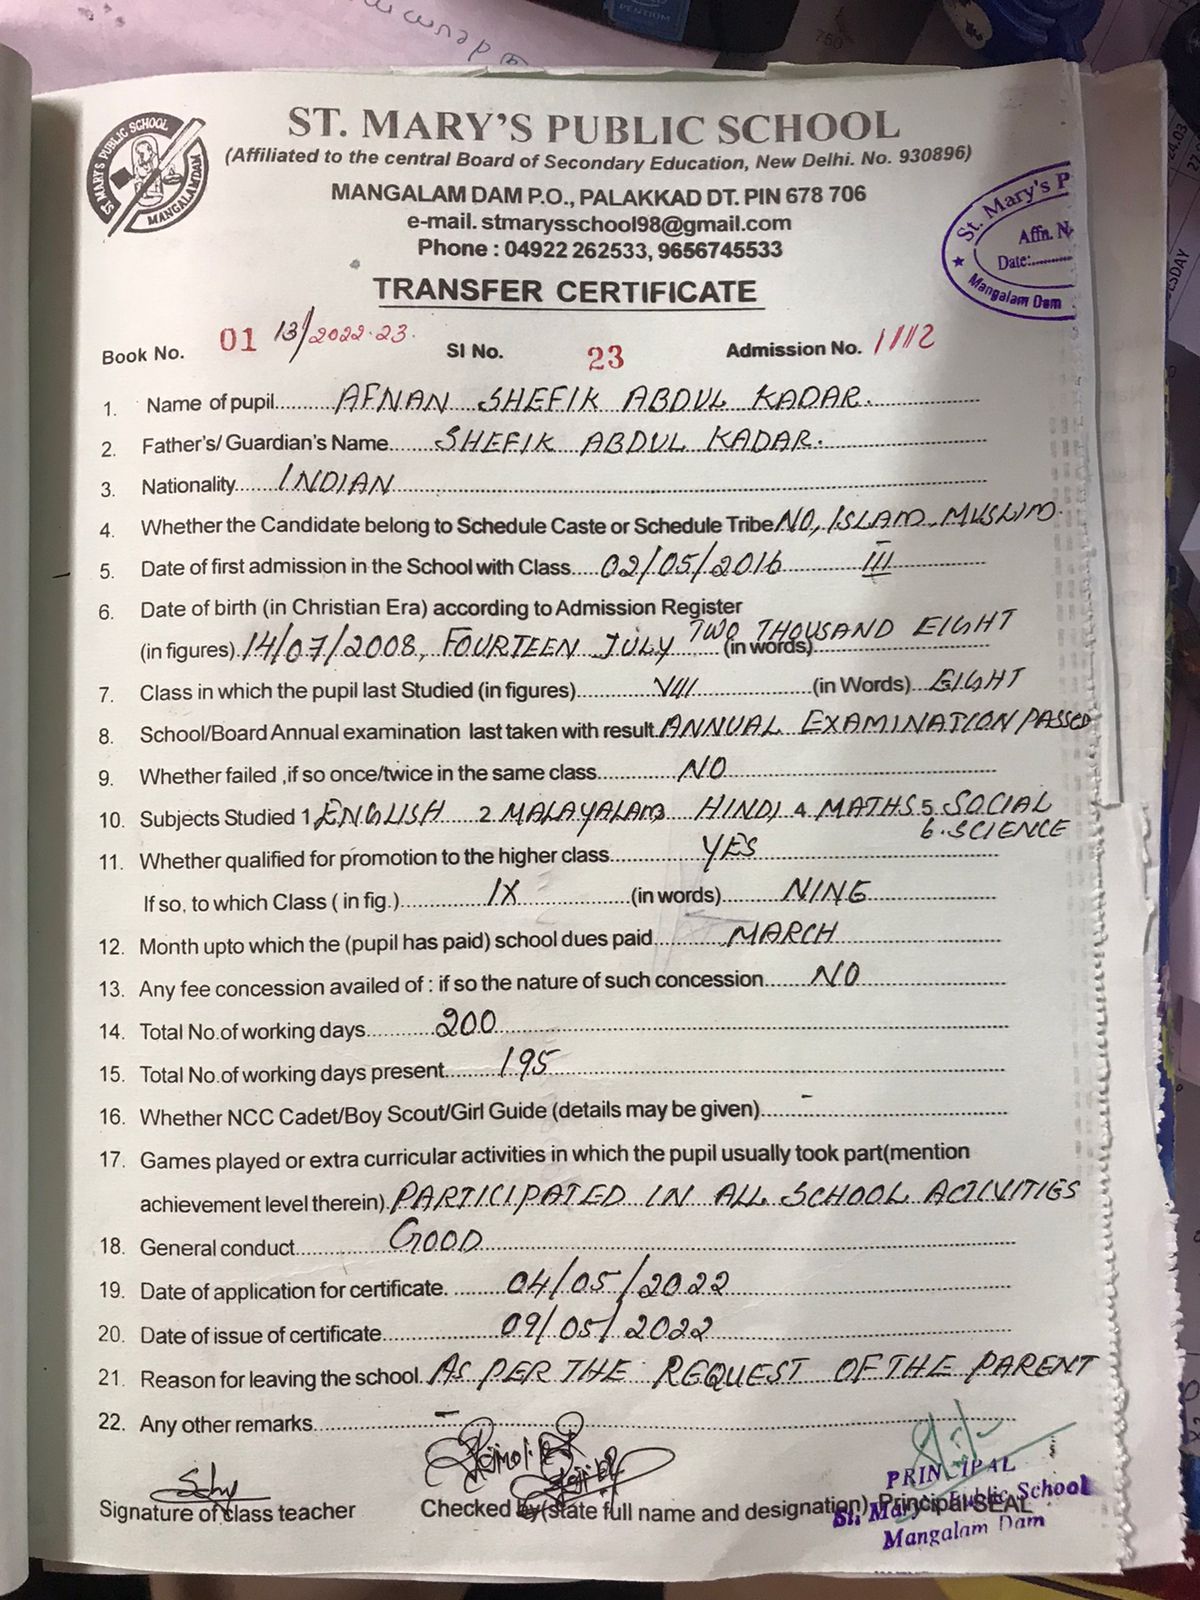 ST. MARY'S PUBLIC SCHOOL
MANGALAMDAM
ST. MARY'S PUBLIC SCHOOL
(Affiliated to the central Board of Secondary Education, New Delhi. No. 930896)
MANGALAM DAM P.O., PALAKKAD DT. PIN 678 706
e-mail. stmarysschool98@gmail.com
Phone : 04922 262533, 9656745533
St. Mary's P
Affn. N
Date:..........
Mangalam Dam
TRANSFER CERTIFICATE
Book No. 01 13/2022-23. SI No. 23 Admission No. 1112
1. Name of pupil AFNAN SHEFIK ABDUL KADAR.
2. Father's/ Guardian's Name SHEFIK ABDUL KADAR.
3. Nationality INDIAN
4. Whether the Candidate belong to Schedule Caste or Schedule Tribe NO, ISLAM, MUSLIM.
5. Date of first admission in the School with Class 02/05/2016 III
6. Date of birth (in Christian Era) according to Admission Register
(in figures) 14/07/2008, FOURTEEN JULY TWO THOUSAND EIGHT (in words)
7. Class in which the pupil last Studied (in figures) VIII (in Words) EIGHT
8. School/Board Annual examination last taken with result ANNUAL EXAMINATION PASSED
9. Whether failed ,if so once/twice in the same class NO
10. Subjects Studied 1 ENGLISH 2 MALAYALAM 3 HINDI 4 MATHS 5 SOCIAL
6. SCIENCE
11. Whether qualified for promotion to the higher class YES
If so, to which Class ( in fig.) IX (in words) NINE
12. Month upto which the (pupil has paid) school dues paid MARCH
13. Any fee concession availed of : if so the nature of such concession NO
14. Total No.of working days 200
15. Total No.of working days present 195
16. Whether NCC Cadet/Boy Scout/Girl Guide (details may be given) -
17. Games played or extra curricular activities in which the pupil usually took part(mention
achievement level therein) PARTICIPATED IN ALL SCHOOL ACTIVITIES
18. General conduct GOOD
19. Date of application for certificate. 04/05/2022
20. Date of issue of certificate 09/05/2022
21. Reason for leaving the school AS PER THE REQUEST OF THE PARENT
22. Any other remarks -
PRINCIPAL
St. Mary's Public School
Mangalam Dam
Signature of class teacher Checked by(state full name and designation) Principal SEAL